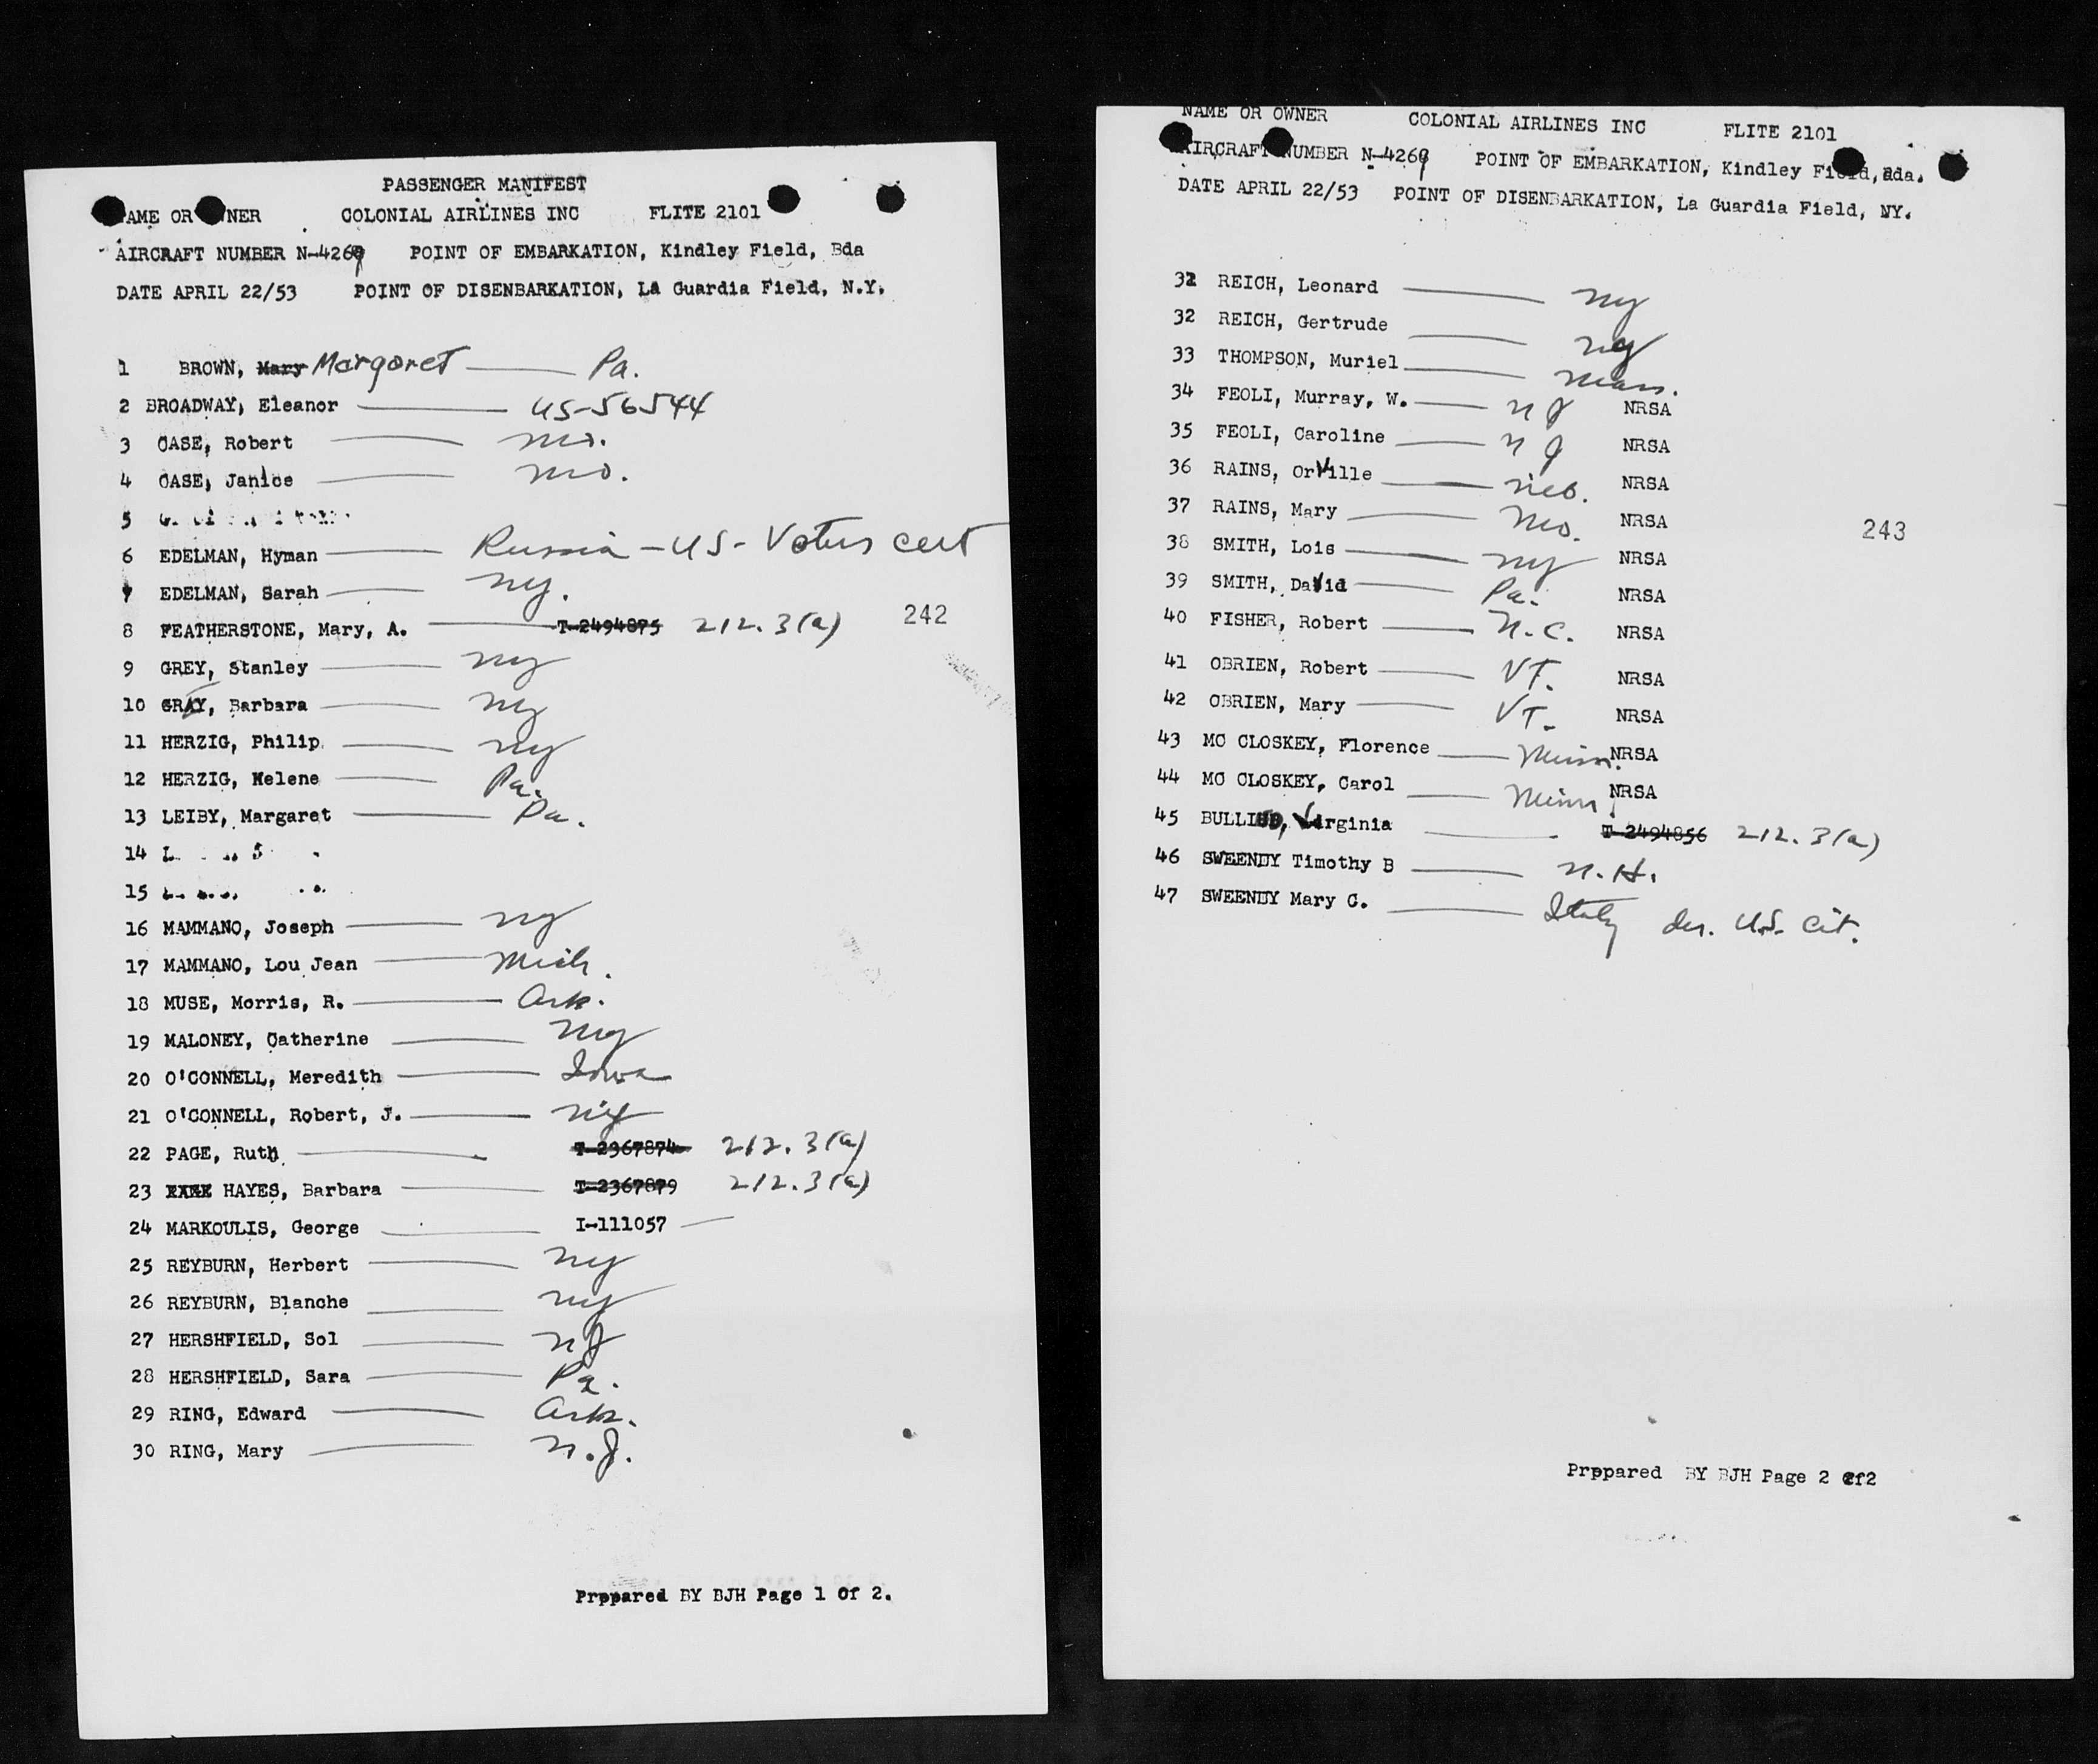 PASSENGER MANIFEST
NAME OR OWNER COLONIAL AIRLINES INC FLITE 2101
AIRCRAFT NUMBER N-4269 POINT OF EMBARKATION, Kindley Field, Bda
DATE APRIL 22/53 POINT OF DISENBARKATION, LA Guardia Field, N.Y.
1 BROWN, Mary Margaret Pa.
2 BROADWAY, Eleanor US-56544
3 CASE, Robert Mo.
4 CASE, Janice Mo.
5
6 EDELMAN, Hyman Russia - US - Voters cert
7 EDELMAN, Sarah NY.
8 FEATHERSTONE, Mary, A. T-2494875 212.3(a) 242
9 GREY, Stanley NY
10 GRAY, Barbara NY
11 HERZIG, Philip NY
12 HERZIG, Helene Pa.
13 LEIBY, Margaret Pa.
14
15
16 MAMMANO, Joseph NY
17 MAMMANO, Lou Jean Mich.
18 MUSE, Morris, R. Ark.
19 MALONEY, Catherine NY
20 O'CONNELL, Meredith Iowa
21 O'CONNELL, Robert, J. NY
22 PAGE, Ruth T-2367874 212.3(a)
23 HAYES, Barbara T-2367879 212.3(a)
24 MARKOULIS, George I-111057
25 REYBURN, Herbert NY
26 REYBURN, Blanche NY
27 HERSHFIELD, Sol NJ
28 HERSHFIELD, Sara Pa.
29 RING, Edward Ark.
30 RING, Mary N.J.
Prppared BY BJH Page 1 Of 2.
NAME OR OWNER COLONIAL AIRLINES INC FLITE 2101
AIRCRAFT NUMBER N-4269 POINT OF EMBARKATION, Kindley Field, Bda.
DATE APRIL 22/53 POINT OF DISENBARKATION, La Guardia Field, NY.
31 REICH, Leonard NY
32 REICH, Gertrude NY
33 THOMPSON, Muriel Mass.
34 FEOLI, Murray, W. NJ NRSA
35 FEOLI, Caroline NJ NRSA
36 RAINS, Orville Neb. NRSA
37 RAINS, Mary Mo. NRSA
243
38 SMITH, Lois NY NRSA
39 SMITH, David Pa. NRSA
40 FISHER, Robert N.C. NRSA
41 OBRIEN, Robert VT. NRSA
42 OBRIEN, Mary VT. NRSA
43 MC CLOSKEY, Florence Minn. NRSA
44 MC CLOSKEY, Carol Minn. NRSA
45 Virginia T-2494856 212.3(a)
46 Timothy B N.H.
47 Mary C. Italy der. U.S. Cit.
Prppared BY BJH Page 2 Of2